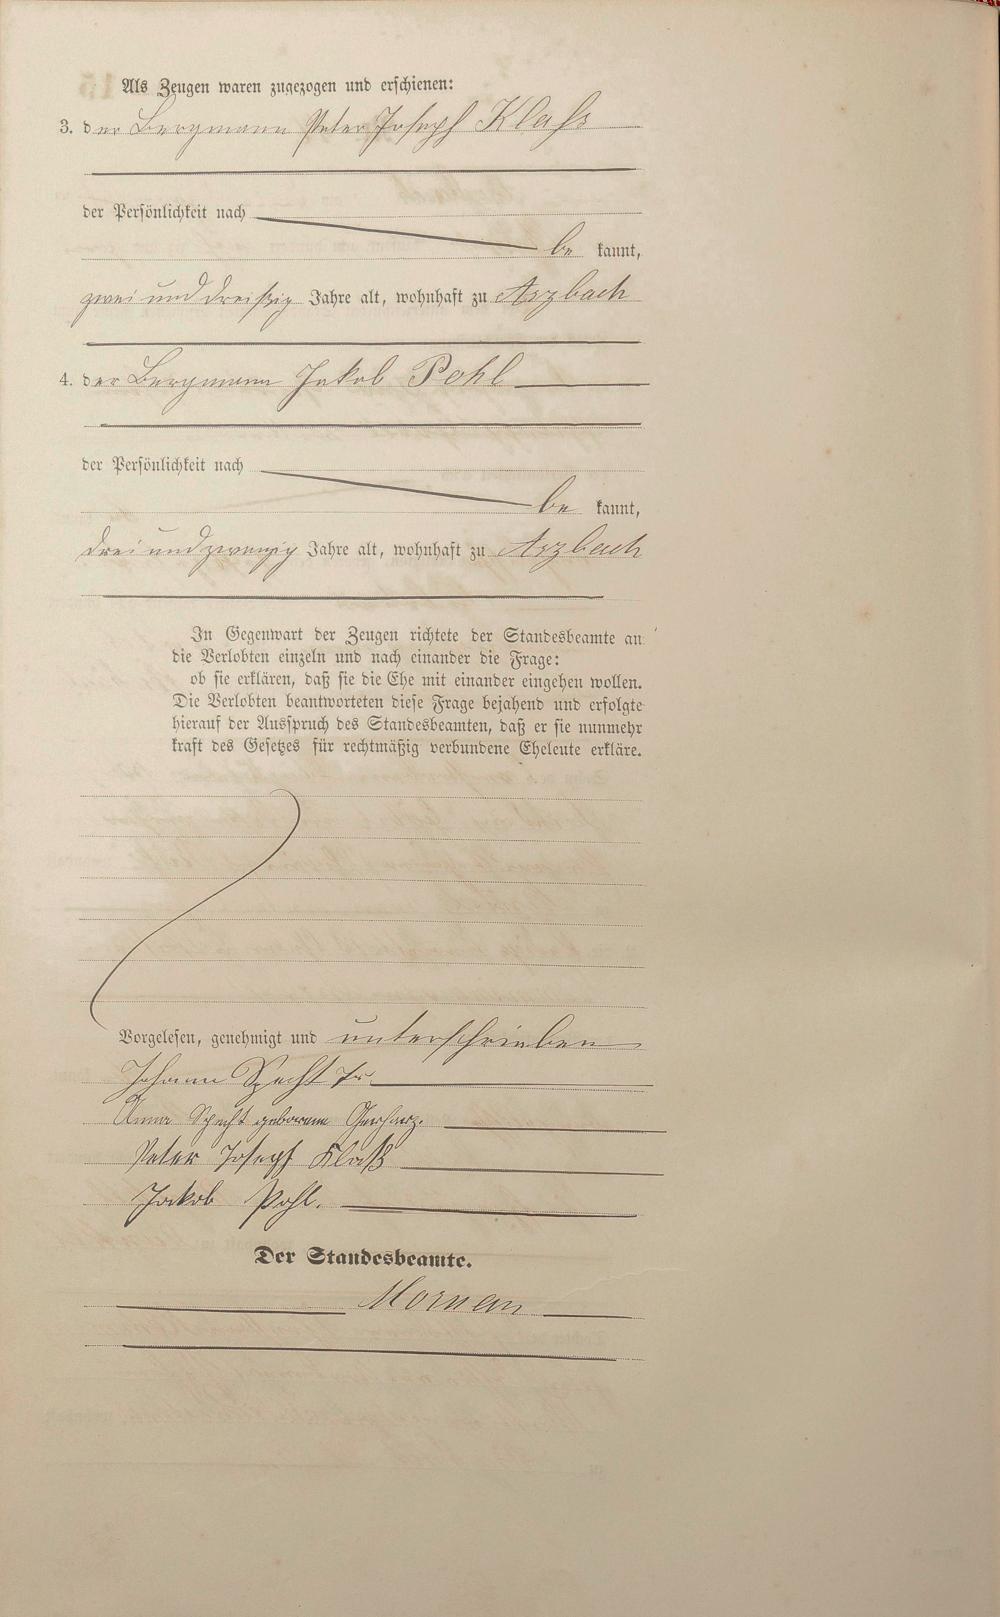 Als Zeugen waren zugezogen und erschienen:
3. der Bergmann Peter Joseph Klahs
der Persönlichkeit nach
be kannt,
zwei und dreißig Jahre alt, wohnhaft zu Arzbach
4. der Bergmann Jakob Pohl
der Persönlichkeit nach
be kannt,
drei und zwanzig Jahre alt, wohnhaft zu Arzbach
In Gegenwart der Zeugen richtete der Standesbeamte an
die Verlobten einzeln und nach einander die Frage:
ob sie erklären, daß sie die Ehe mit einander eingehen wollen.
Die Verlobten beantworteten diese Frage bejahend und erfolgte
hierauf der Ausspruch des Standesbeamten, daß er sie nunmehr
kraft des Gesetzes für rechtmäßig verbundene Eheleute erkläre.
Vorgelesen, genehmigt und unterschrieben
Johann Specht
Anna Specht geborene Gerharz.
Peter Joseph Klaß
Jakob Pohl.
Der Standesbeamte.